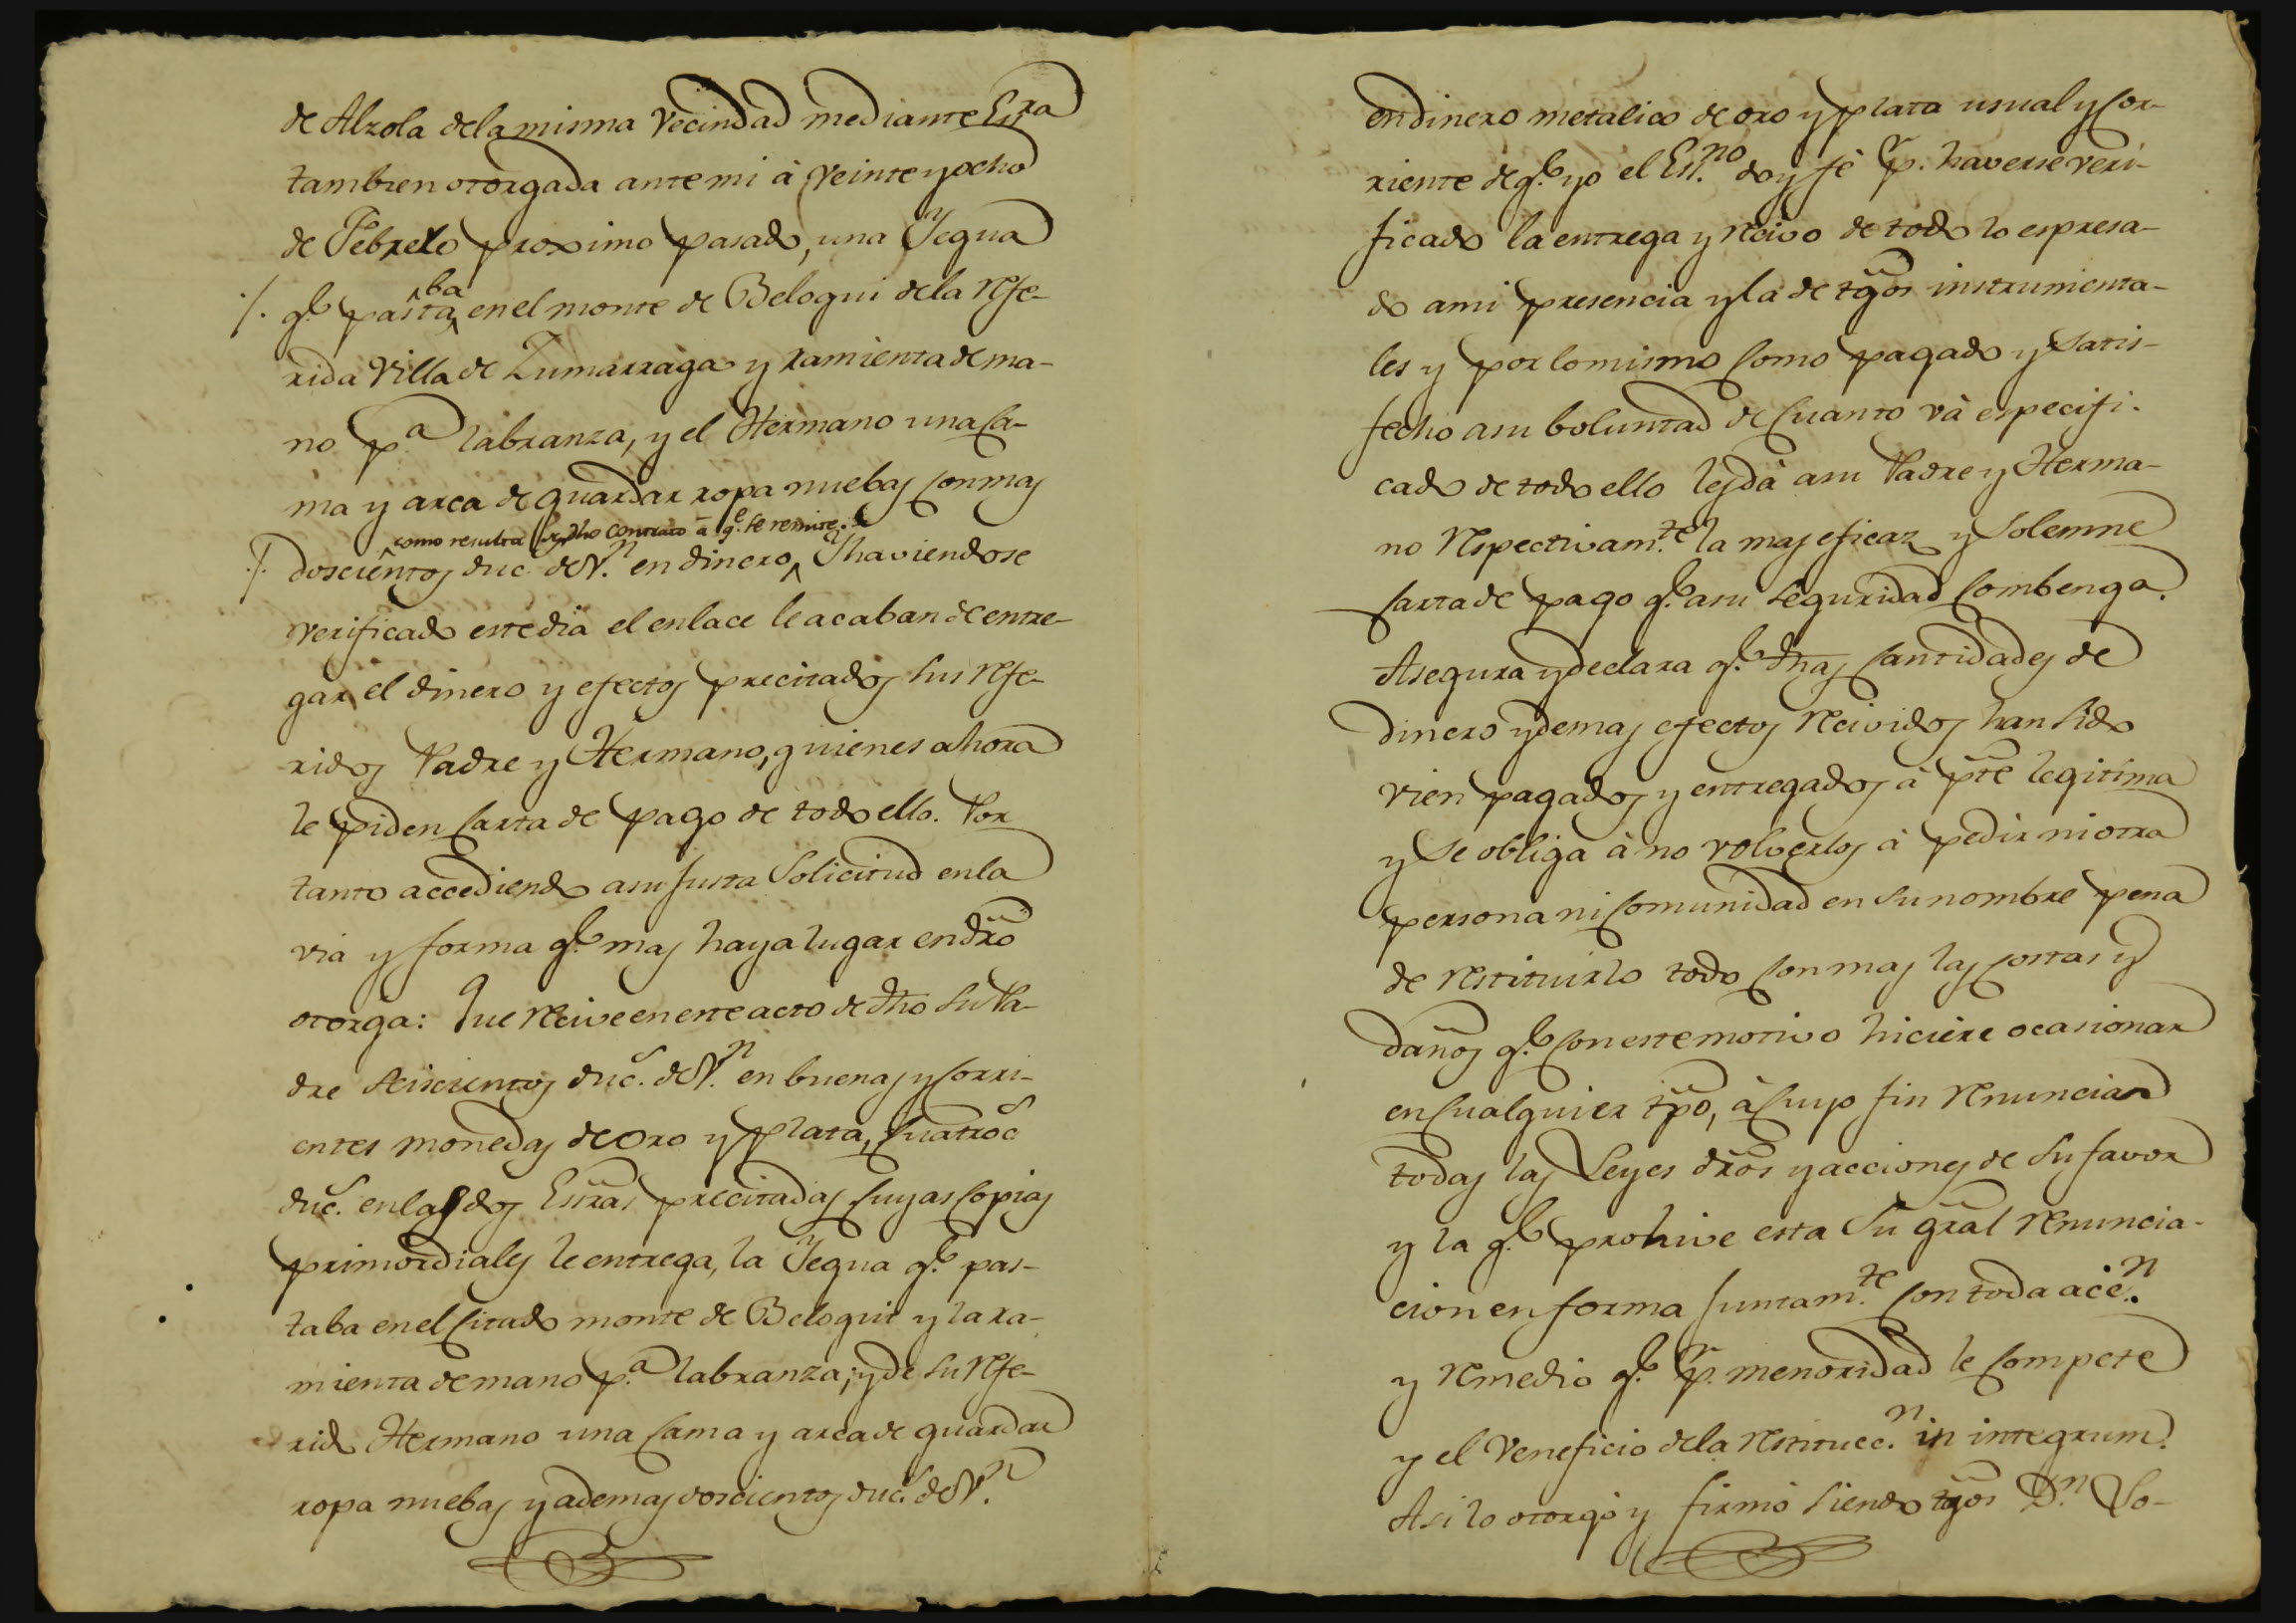 de Alzola dela misma Vecindad mediante Esrª
tambien otorgada ante mi à veinte y ocho
de Febrero proximo pasado, una Yegua
./. q.e pasta^ba en el monte de Beloqui dela refe-
rida Villa de Zumarraga y ramienta de ma-
no p.ª labranza, y el Hermano una ca-
ma y arca de guardar ropa nuebas con mas
como resulta dho contrato à q.e se remite.
./. doscientos duc.s de V.n en dinero^ Y haviendose
verificado este dia el enlace le acaban de entre-
gar el dinero y efectos precitados sus refe-
ridos Padre y Hermano, quienes ahora
le piden carta de pago de todo ello. Por
tanto accediendo asu justa solicitud en la
via y forma q.e mas haya lugar en dr̃o
otorga: Que recive en este acto de dho su Pa-
dre seiscientos duc.s de V.n en buenas y corri-
entes monedas de oro y plata, quatroc.s
duc.s en las dos Esrãs precitadas cuyas copias
primordiales le entrega, la Yegua q.e pas-
taba en el citado monte de Beloqui y la ra-
mienta de mano p.ª labranza; y de su refe-
rido Hermano una cama y arca de guardar
ropa nuebas y ademas doscientos duc.s de V.n
en dinero metalico de oro y plata usual y cor-
riente de q.e yo el Es.no doy fé p.r haverse veri-
ficado la entrega y recivo de todo lo espresa-
do a mi presencia y la de tg̃os instrumenta-
les y por lo mismo como pagado y satis-
fecho asu boluntad de cuanto và especifi-
cado de todo ello les dà asu Padre y Herma-
no respectivam.te la mas eficaz y solemne
carta de pago q.e asu seguridad combenga.
Asegura y declara q.e dhas cantidades de
dinero y demas efectos recividos han sido
vien pagados y entregados à pt̃e legitima
y se obliga à no volverlos à pedir ni otra
persona ni comunidad en su nombre pena
de restituirlo todo con mas las costas y
daños q.e con este motivo hiciere ocasionar
en cualquier tp̃o, à cuyo fin renuncia
todas las Leyes dr̃os y acciones de su favor
y la q.e prohive esta su gr̃al renuncia-
cion en forma juntam.te con toda acc.n
y remedio q.e p.r menoridad le compete
y el veneficio dela restitucc.n in integrum.
Asi lo otorgó y firmó siendo tg̃os D.n Lo-